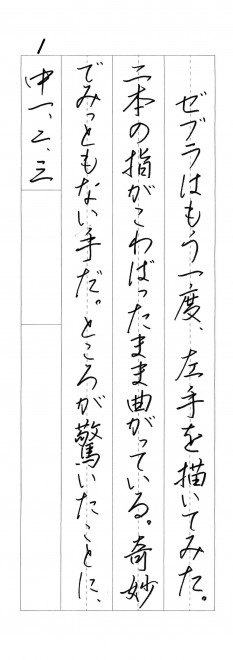 ゼブラはもう一度、左手を描いてみた。
二本の指がこわばったまま曲がっている。奇妙
でみっともない手だ。ところが驚いたことに、
中一、二、三
1